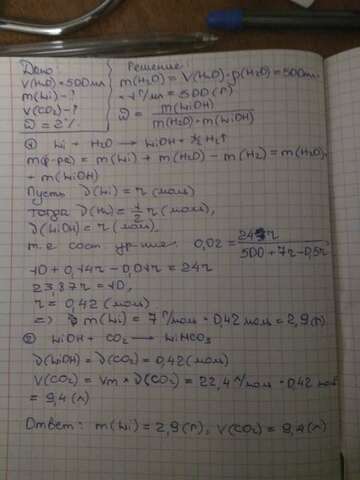 Дано:
V(H₂O)=500мл
m(Li)-?
V(CO₂)-?
ω=2%
Решение:
m(H₂O)=V(H₂O)·ρ(H₂O)=500мл·
·1г/мл=500(г)
ω= m(LiOH) / m(H₂O)+m(LiOH)
① Li + H₂O → LiOH + ½H₂↑
m(р-ра) = m(Li) + m(H₂O) - m(H₂) = m(H₂O)+
+ m(LiOH)
Пусть ν(Li) = x (моль)
Тогда ν(H₂) = 1/2 x (моль),
ν(LiOH) = x (моль),
т.е. сост. ур-ние: 0,02 = 24x / 500+7x-0,5x
10 + 0,14x - 0,01x = 24x
23,87x = 10,
x = 0,42 (моль)
=> m(Li) = 7 г/моль · 0,42 моль = 2,9(г)
② LiOH + CO₂ → LiHCO₃
ν(LiOH) = ν(CO₂) = 0,42(моль)
V(CO₂) = Vm × ν(CO₂) = 22,4 л/моль · 0,42 моль
= 9,4(л)
Ответ: m(Li) = 2,9(г), V(CO₂) = 9,4(л)